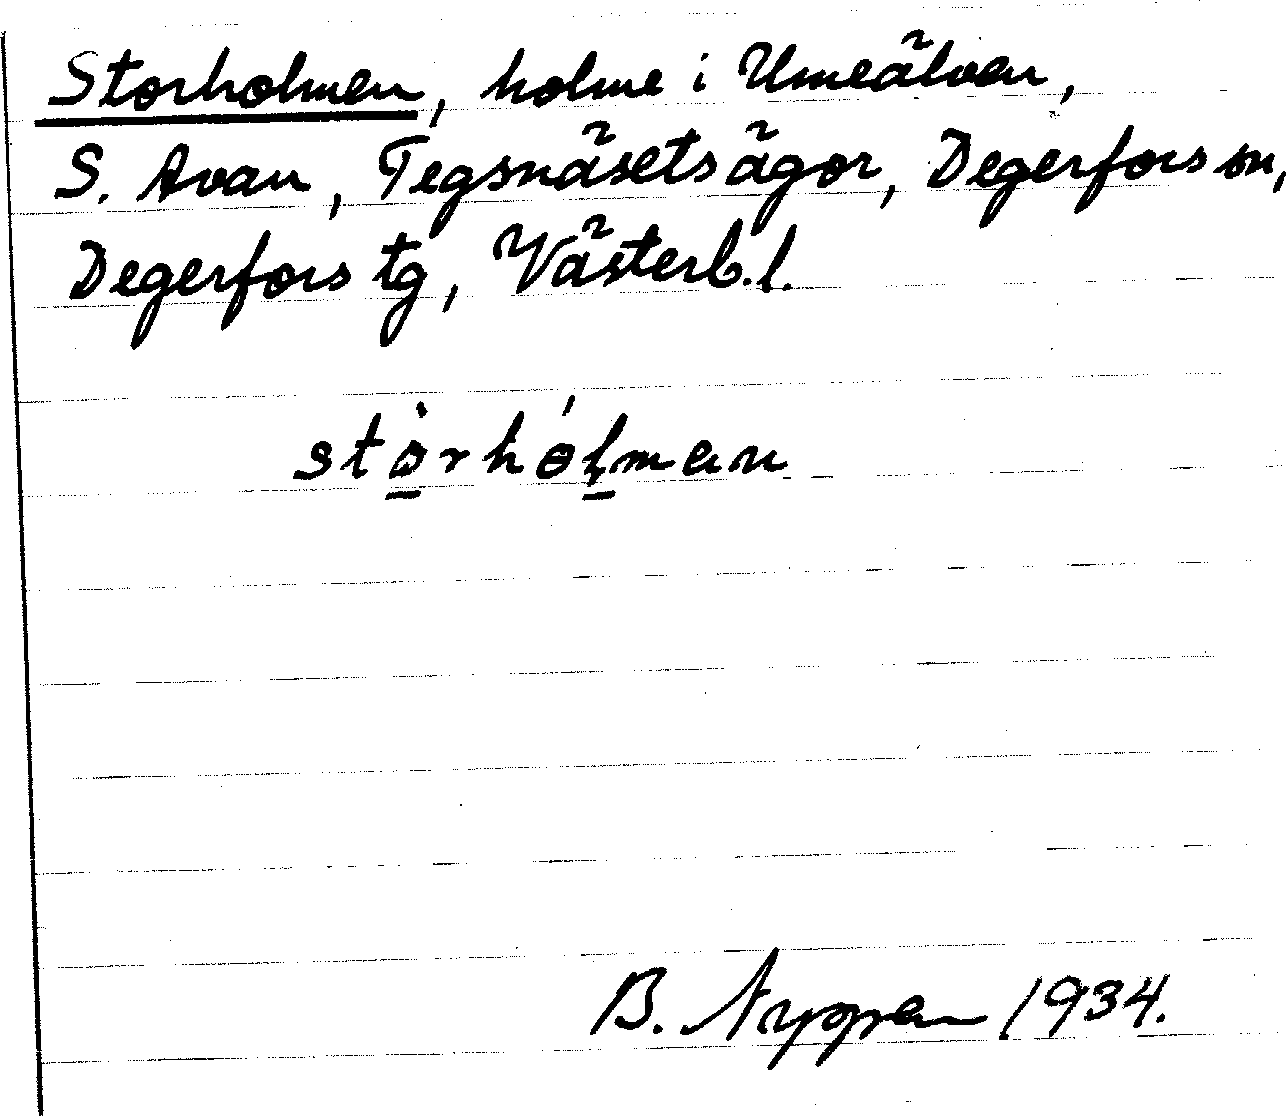 Storholmen, holme i Umeälven,
S. Avan, Tegsnäsets ägor, Degerfors sn,
Degerfors tg, Västerb. l.
stò̱rhóḻmen
B. 1934.